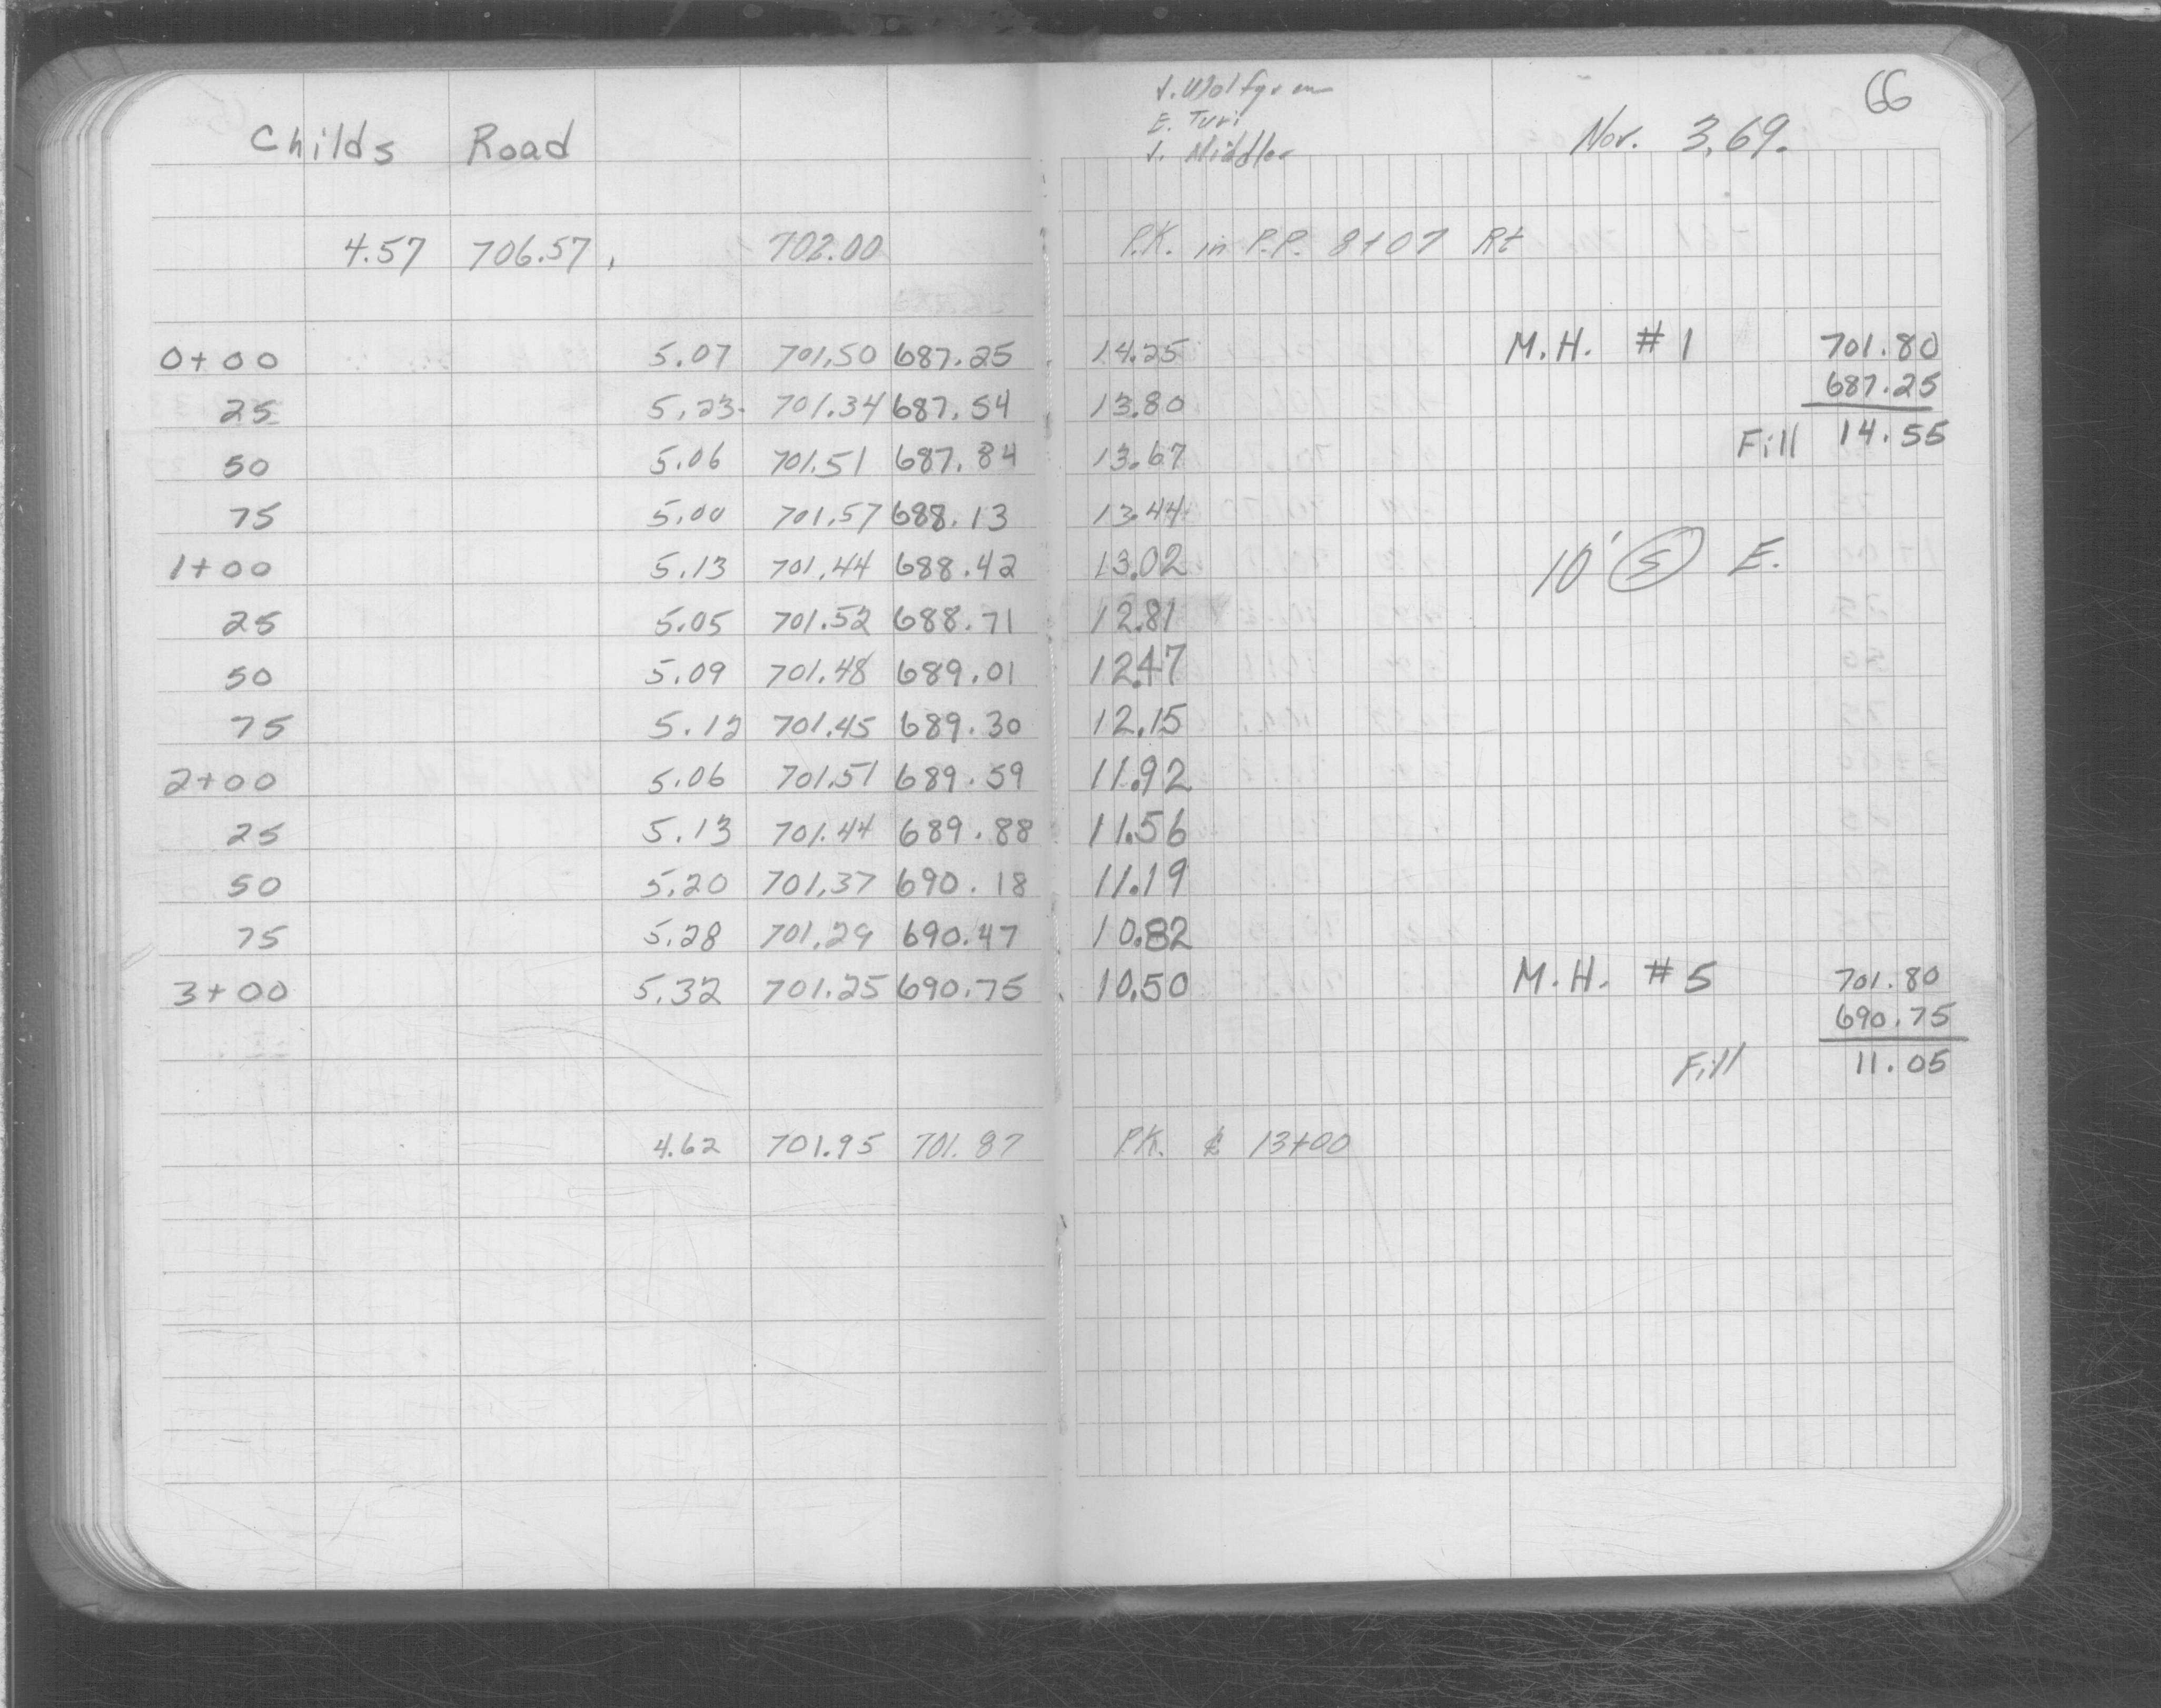 66
J. Wolfgram
E. Turi
Childs Road
Nov. 3, 69.
4.57 706.57, 702.00 P.K. in P.P. 8107 Rt
0+00 5.07 701.50 687.25 14.25 M.H. #1 701.80
687.25
25 5.23 701.34 687.54 13.80
Fill 14.55
50 5.06 701.51 687.84 13.67
75 5.00 701.57 688.13 13.44
1+00 5.13 701.44 688.42 13.02 10' S E.
25 5.05 701.52 688.71 12.81
50 5.09 701.48 689.01 12.47
75 5.12 701.45 689.30 12.15
2+00 5.06 701.51 689.59 11.92
25 5.13 701.44 689.88 11.56
50 5.20 701.37 690.18 11.19
75 5.28 701.29 690.47 10.82
3+00 5.32 701.25 690.75 10.50 M.H. #5 701.80
690.75
Fill 11.05
4.62 701.95 701.87 P.K. ℄ 13+00